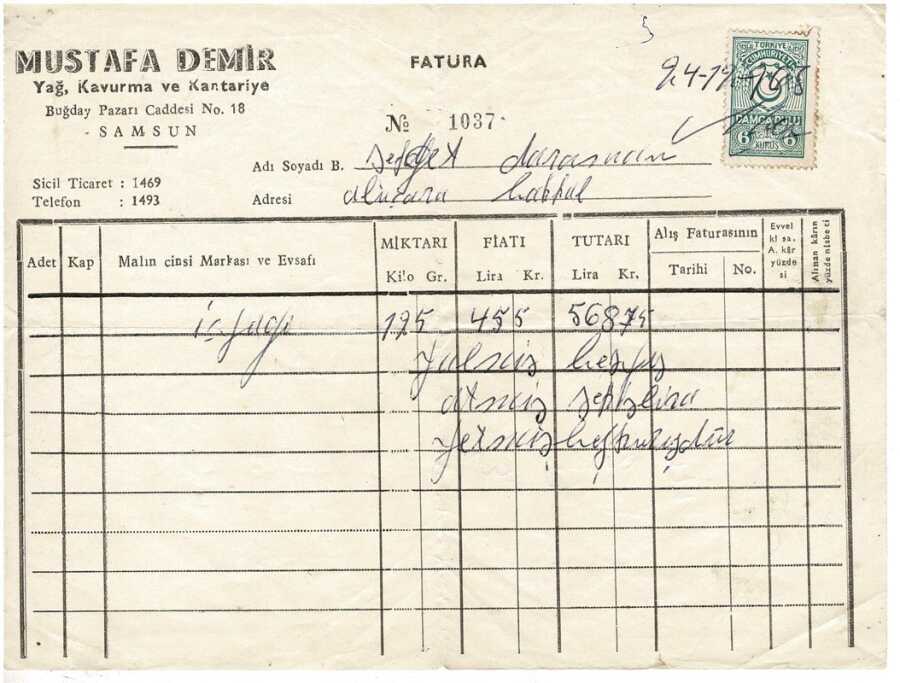 MUSTAFA DEMİR
Yağ, Kavurma ve Kantariye
Buğday Pazarı Caddesi No. 18
SAMSUN
Sicil Ticaret : 1469
Telefon : 1493
FATURA
№ 1037
TÜRKİYE
CUMHURİYETİ
DAMGA PULU
6 KURUŞ 6
Adı Soyadı B.
Adresi
Adet Kap Malın cinsi Markası ve Evsafı MİKTARI Kilo Gr. FİATI Lira Kr. TUTARI Lira Kr. Alış Faturasının Tarihi No. Evvelki sa. A. kâr yüzdesi Alınan kârın yüzde nisbeti
iç yağı 125 455 56875
Yalnız beşyüz
atmış sekizlira
yetmiş beşkuruşdur